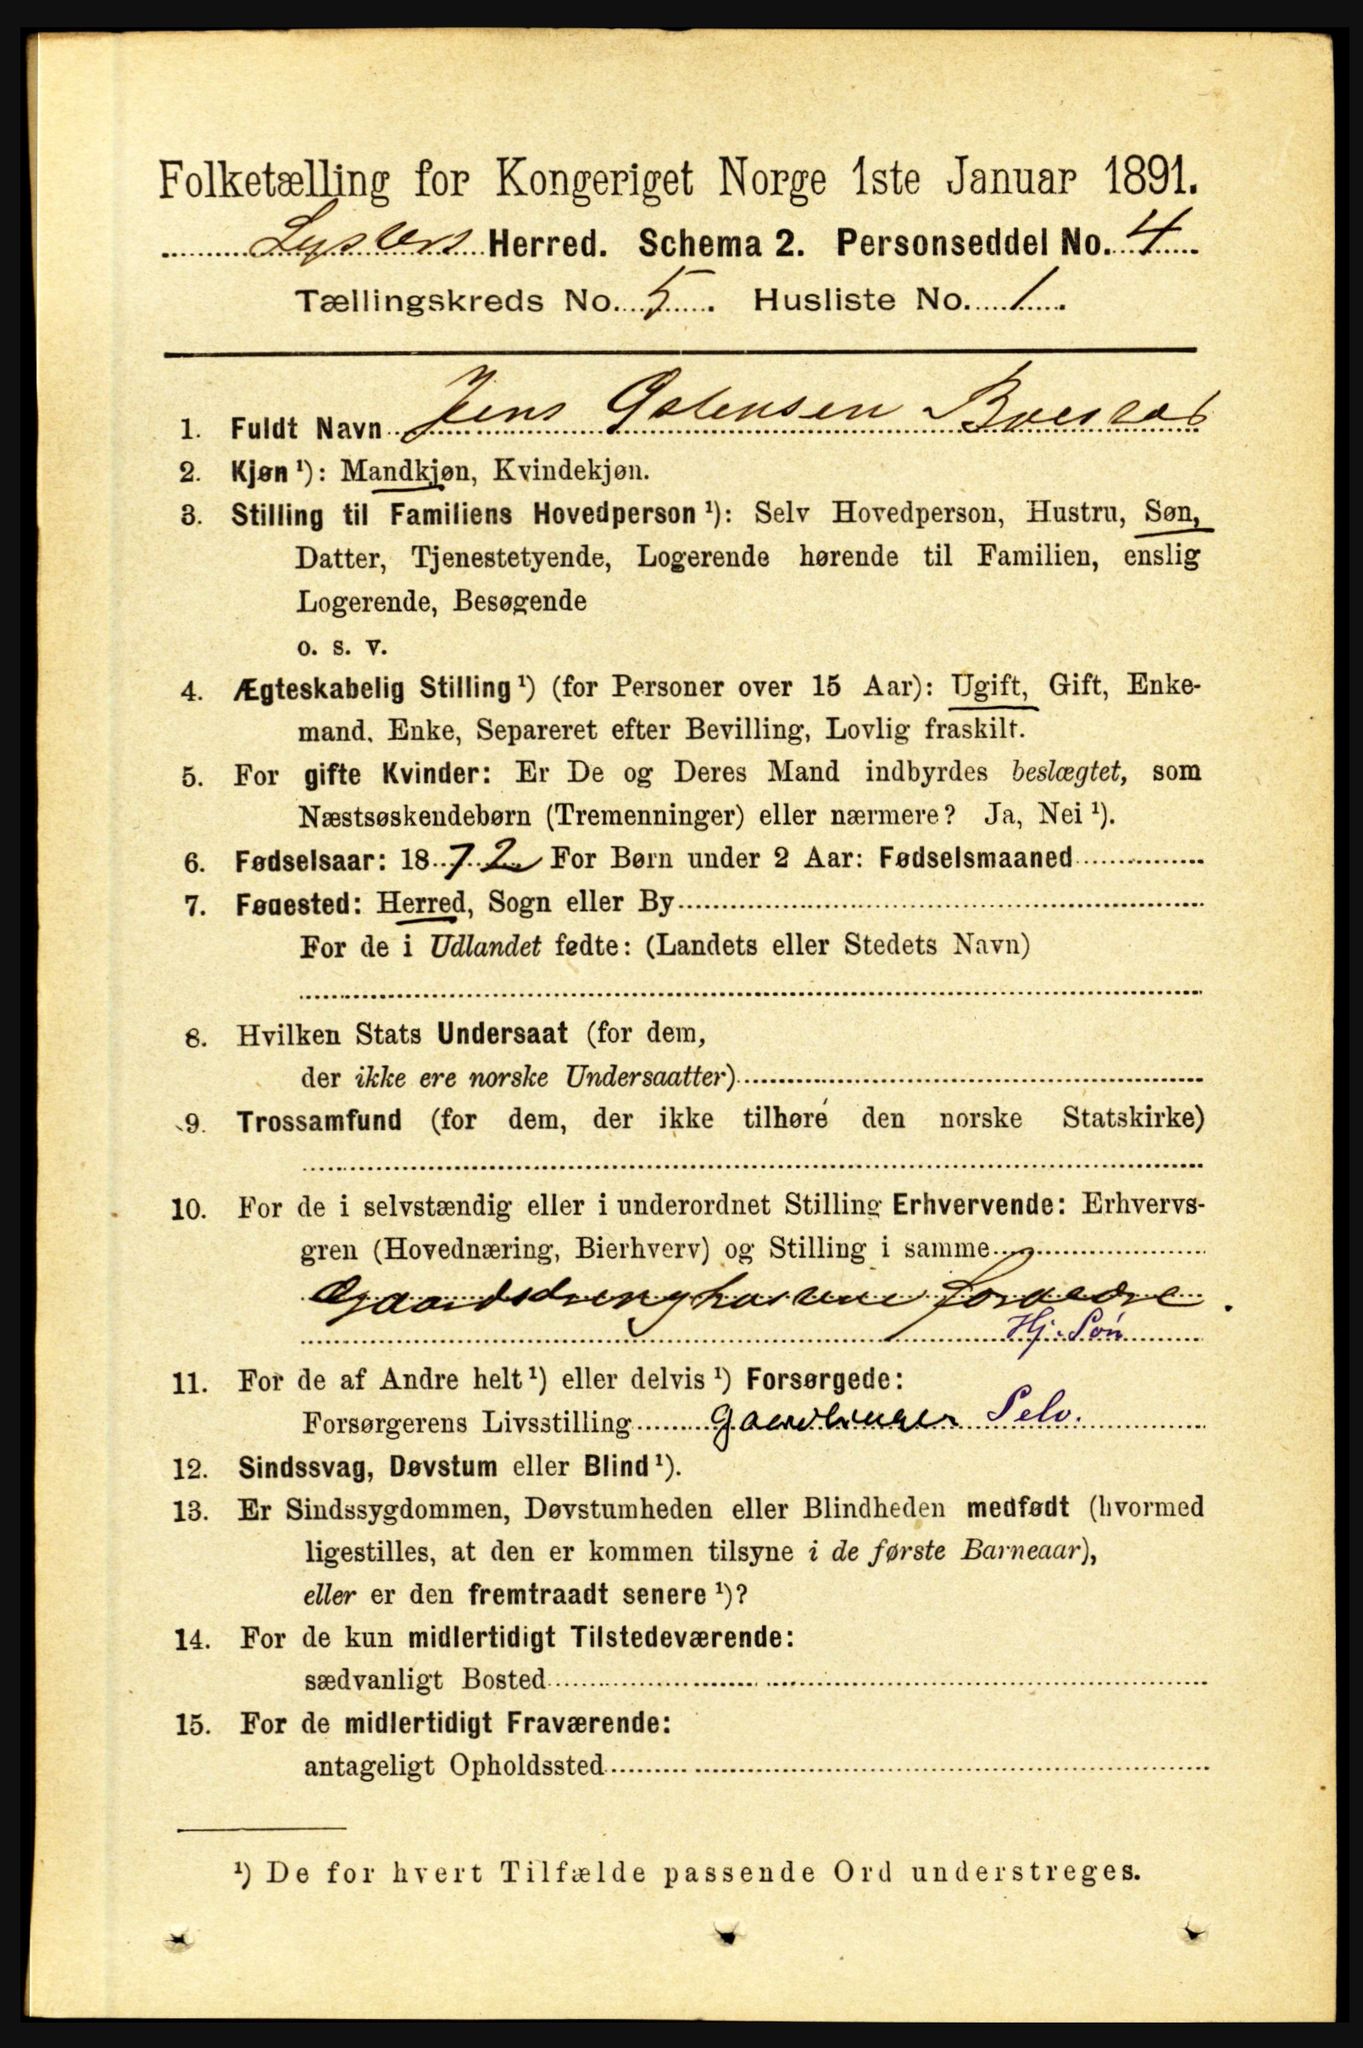 Folketælling for Kongeriget Norge 1ste Januar 1891.
Lysters Herred. Schema 2. Personseddel No. 4
Tællingskreds No. 5. Husliste No. 1.
1. Fuldt Navn Jens
2. Kjøn ¹): Mandkjøn, Kvindekjøn.
3. Stilling til Familiens Hovedperson ¹): Selv Hovedperson, Hustru, Søn,
Datter, Tjenestetyende, Logerende hørende til Familien, enslig
Logerende, Besøgende
o. s. v.
4. Ægteskabelig Stilling ¹) (for Personer over 15 Aar): Ugift, Gift, Enke-
mand, Enke, Separeret efter Bevilling, Lovlig fraskilt.
5. For gifte Kvinder: Er De og Deres Mand indbyrdes beslægtet, som
Næstsøskendebørn (Tremenninger) eller nærmere? Ja, Nei ¹).
6. Fødselsaar: 1872 For Børn under 2 Aar: Fødselsmaaned
7. Fødested: Herred, Sogn eller By
For de i Udlandet fødte: (Landets eller Stedets Navn)
8. Hvilken Stats Undersaat (for dem,
der ikke ere norske Undersaatter)
9. Trossamfund (for dem, der ikke tilhøre den norske Statskirke)
10. For de i selvstændig eller i underordnet Stilling Erhvervende: Erhvervs-
gren (Hovednæring, Bierhverv) og Stilling i samme
Gaardsdreng hos sine foreldre.
Hj. Søn
11. For de af Andre helt ¹) eller delvis ¹) Forsørgede:
Forsørgerens Livsstilling Gaardbruger Selv.
12. Sindssvag, Døvstum eller Blind ¹).
13. Er Sindssygdommen, Døvstumheden eller Blindheden medfødt (hvormed
ligestilles, at den er kommen tilsyne i de første Barneaar),
eller er den fremtraadt senere ¹)?
14. For de kun midlertidigt Tilstedeværende:
sædvanligt Bosted
15. For de midlertidigt Fraværende:
antageligt Opholdssted
¹) De for hvert Tilfælde passende Ord understreges.